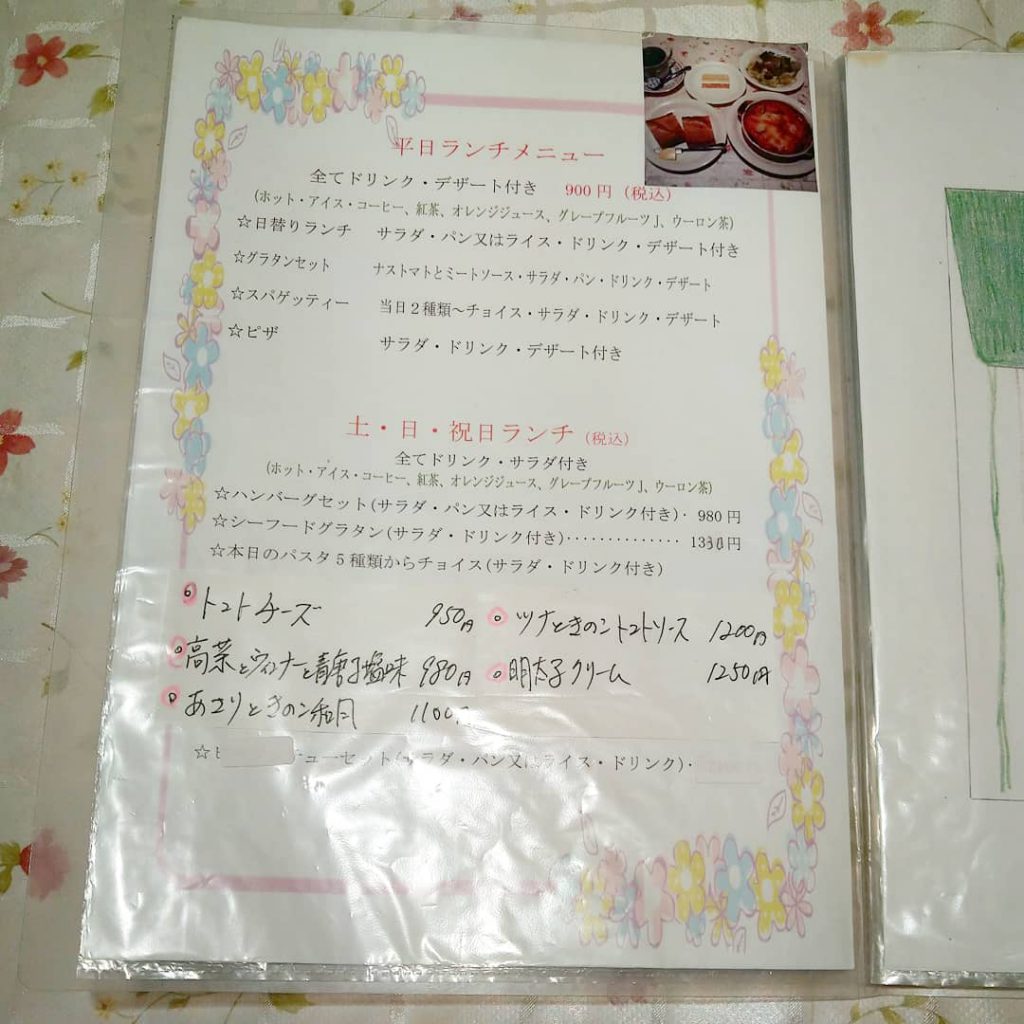 平日ランチメニュー
全てドリンク・デザート付き 900円(税込)
(ホット・アイス・コーヒー、紅茶、オレンジジュース、グレープフルーツJ、ウーロン茶)
☆日替りランチ サラダ・パン又はライス・ドリンク・デザート付き
☆グラタンセット ナストマトとミートソース・サラダ・パン・ドリンク・デザート
☆スパゲッティー 当日2種類～チョイス・サラダ・ドリンク・デザート
☆ピザ サラダ・ドリンク・デザート付き
土・日・祝日ランチ(税込)
全てドリンク・サラダ付き
(ホット・アイス・コーヒー、紅茶、オレンジジュース、グレープフルーツJ、ウーロン茶)
☆ハンバーグセット(サラダ・パン又はライス・ドリンク付き)・ 980円
☆シーフードグラタン(サラダ・ドリンク付き)・・・・・・・・・・・・・・ 円
☆本日のパスタ5種類からチョイス(サラダ・ドリンク付き)
トマトチーズ 950円
ツナときのこトマトソース 1200円
高菜とウィンナーと青唐子塩味 980円
明太子クリーム 1250円
あさりときのこ和風 1100円
☆ チューセット(サラダ・パン又はライス・ドリンク)・